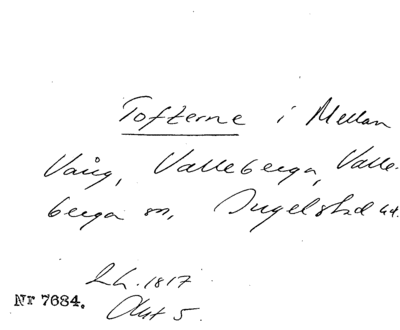 Tofterne i Mellan
Vång, Valleberga, Valle-
berga sn, Ingelstad hd.
L.L. 1817
Nr 7684. Akt 5.